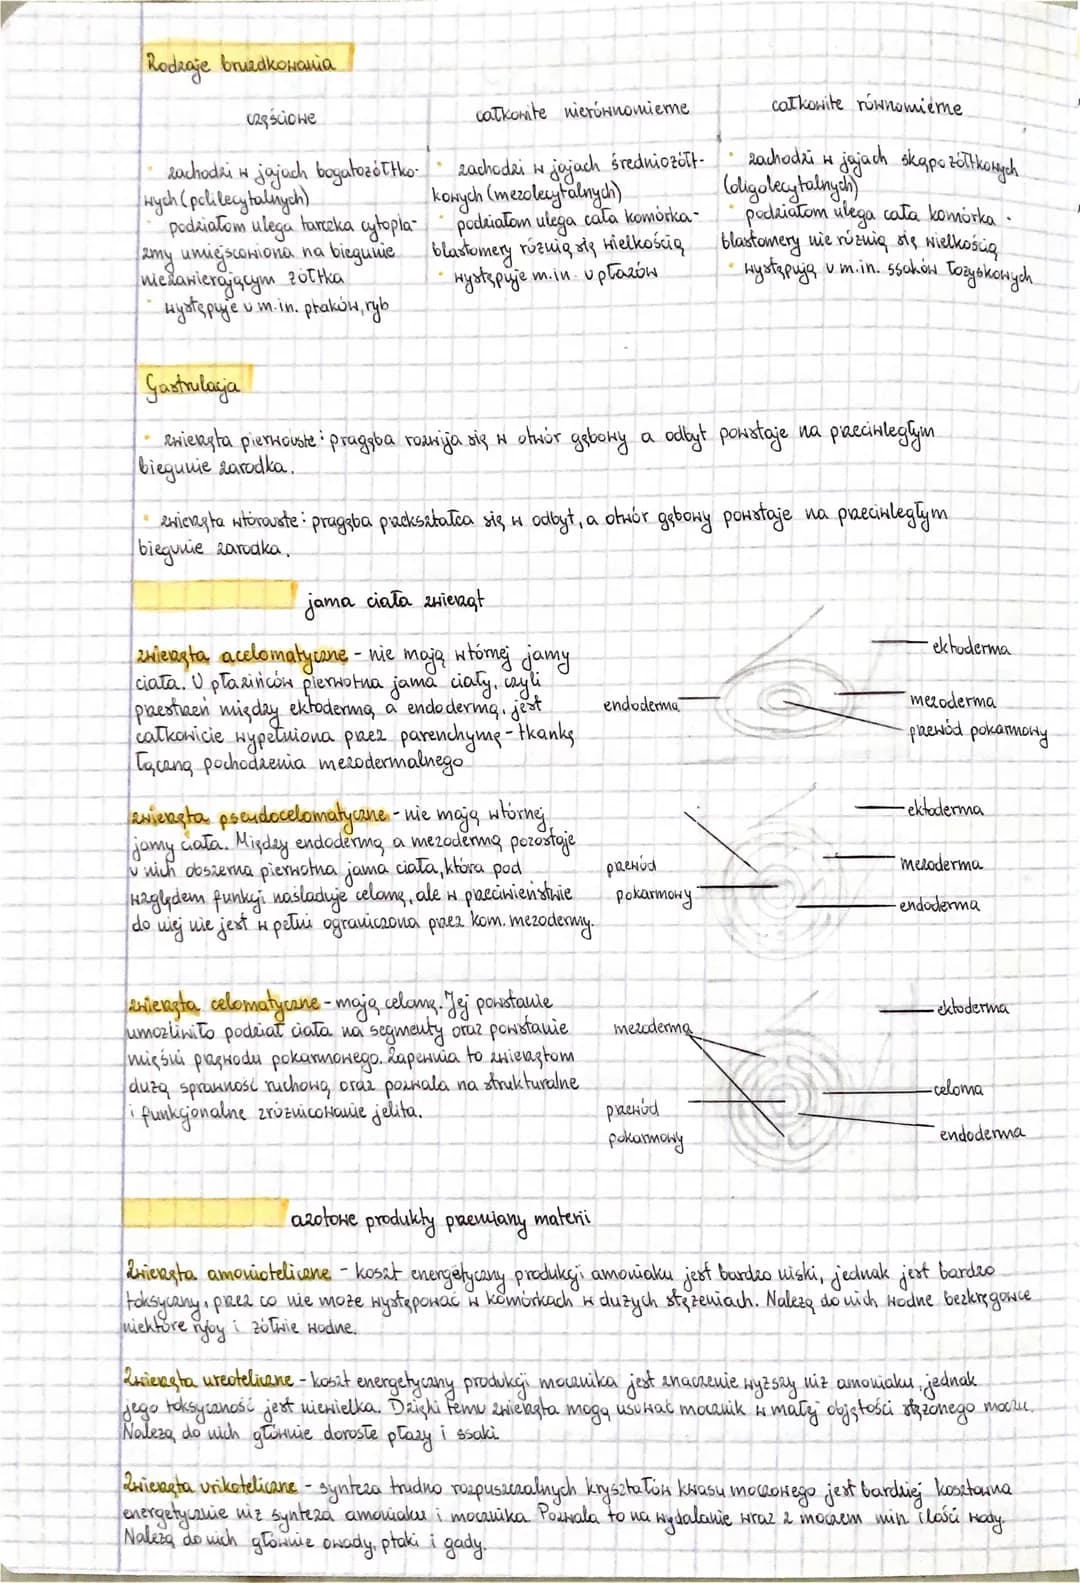 Rodzaje bruzdkowania
częściowe
zachodzi w jajach bogatożółtko-
wych (polilecytalnych)
podziałom ulega tarczka cytopla-
zmy umiejscowiona na biegunie
niezawierającym żółtka
występuje u m.in. ptaków, ryb
całkowite nierównomierne
zachodzi w jajach średniożółt-
kowych (mezolecytalnych)
podziałom ulega cała komórka-
blastomery różnią się wielkością
występuje m.in. u płazów
całkowite równomierne
zachodzi w jajach skąpożółtkowych
(oligolecytalnych)
podziałom ulega cała komórka -
blastomery nie różnią się wielkością
występują u m.in. ssaków łożyskowych
Gastrulacja
zwierzęta pierwouste: pragęba rozwija się w otwór gębowy a odbyt powstaje na przeciwległym
biegunie zarodka.
zwierzęta wtórouste: pragęba przekształca się w odbyt, a otwór gębowy powstaje na przeciwległym
biegunie zarodka.
jama ciała zwierząt
zwierzęta acelomatyczne - nie mają wtórnej jamy
ciała. U płazińców pierwotna jama ciały, czyli
przestrzeń między ektodermą a endodermą, jest
całkowicie wypełniona przez parenchymę - tkankę
łączną pochodzenia mezodermalnego
endoderma
ektoderma
mezoderma
przewód pokarmowy
zwierzęta pseudocelomatyczne - nie mają wtórnej
jamy ciała. Między endodermą a mezodermą pozostaje
u nich obszerna pierwotna jama ciała, która pod
względem funkcji naśladuje celomę, ale w przeciwieństwie
do niej nie jest w pełni ograniczona przez kom. mezodermy.
przewód
pokarmowy
ektoderma
mezoderma
endoderma
zwierzęta celomatyczne - mają celomę. Jej powstanie
umożliwiło podział ciała na segmenty oraz powstanie
mięśni przewodu pokarmowego. Zapewnia to zwierzętom
dużą sprawność ruchową oraz pozwala na strukturalne
i funkcjonalne zróżnicowanie jelita.
mezoderma
przewód
pokarmowy
ektoderma
celoma
endoderma
azotowe produkty przemiany materii
Zwierzęta amonioteliczne - koszt energetyczny produkcji amoniaku jest bardzo niski, jednak jest bardzo
toksyczny, przez co nie może występować w komórkach w dużych stężeniach. Należą do nich wodne bezkręgowce
niektóre ryby i żółwie wodne.
Zwierzęta ureoteliczne - koszt energetyczny produkcji mocznika jest znacznie wyższy niż amoniaku, jednak
jego toksyczność jest niewielka. Dzięki temu zwierzęta mogą usuwać mocznik w małej objętości stężonego moczu.
Należą do nich głównie dorosłe płazy i ssaki
Zwierzęta urikoteliczne - synteza trudno rozpuszczalnych kryształów kwasu moczowego jest bardziej kosztowna
energetycznie niż synteza amoniaku i mocznika. Pozwala to na wydalanie wraz z moczem min ilości wody.
Należą do nich głównie owady, ptaki i gady.